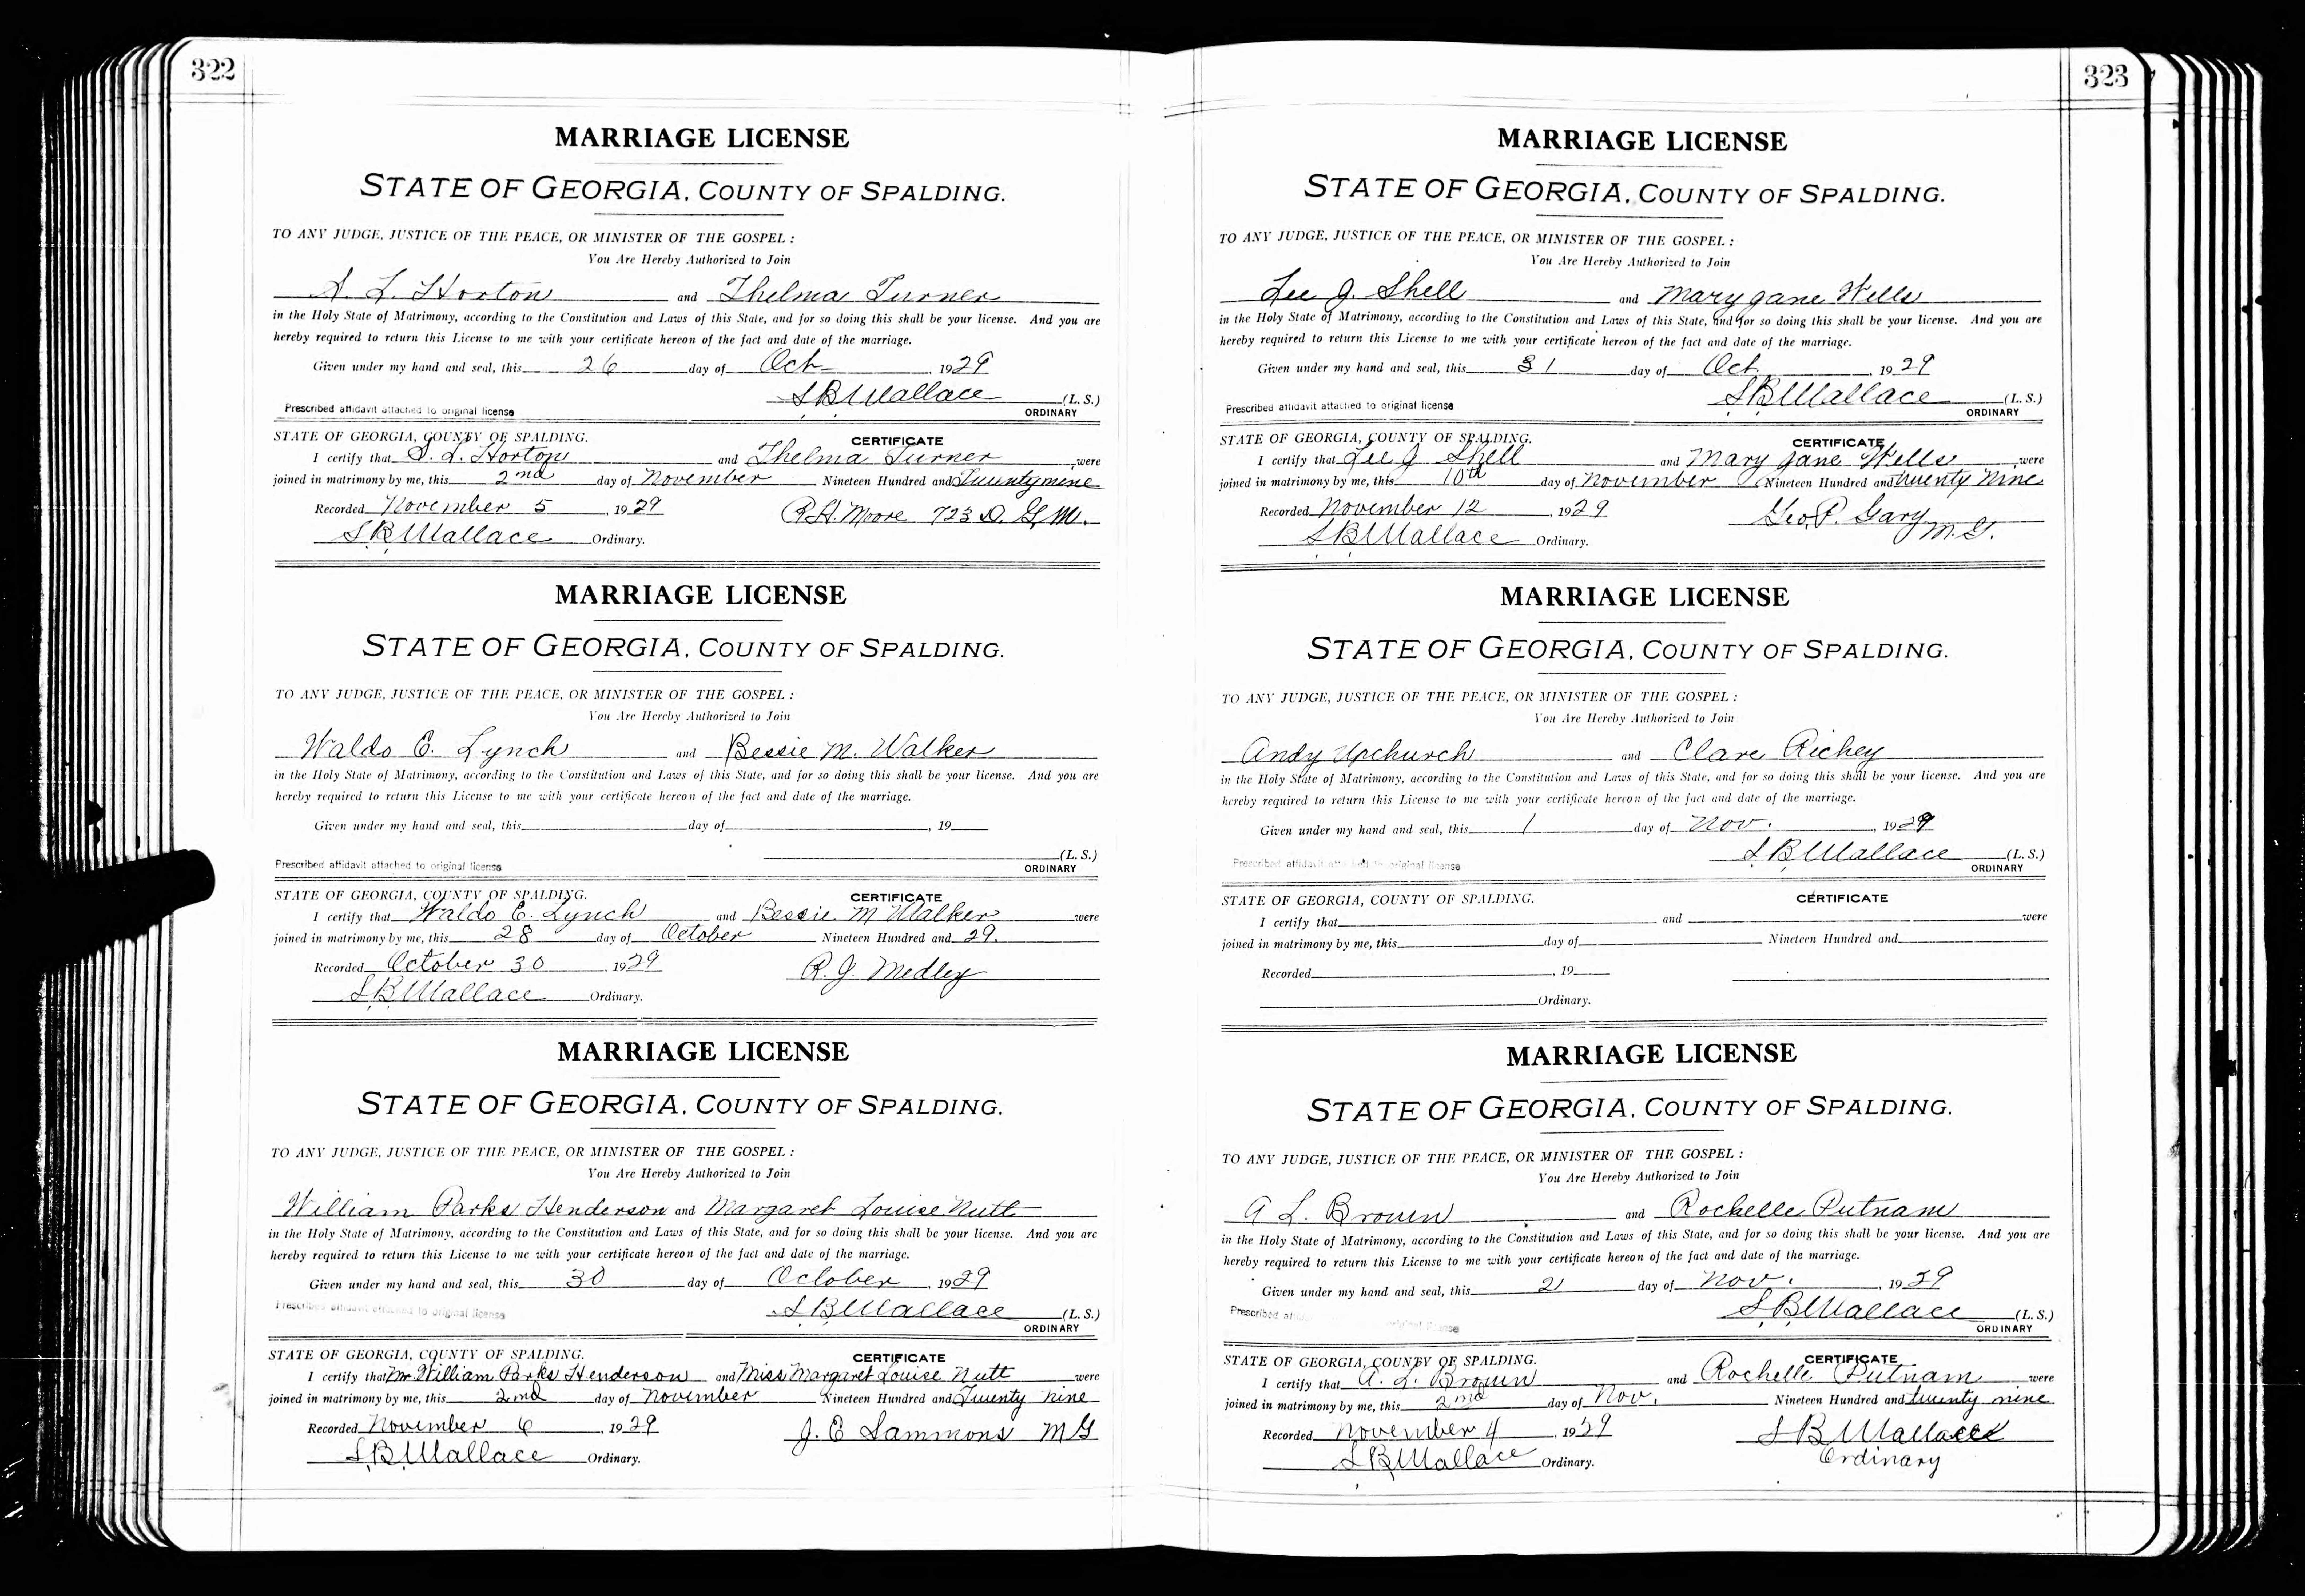 322
MARRIAGE LICENSE
STATE OF GEORGIA, COUNTY OF SPALDING.
TO ANY JUDGE, JUSTICE OF THE PEACE, OR MINISTER OF THE GOSPEL:
You Are Hereby Authorized to Join
S. L. Horton and Thelma Turner
in the Holy State of Matrimony, according to the Constitution and Laws of this State, and for so doing this shall be your license. And you are
hereby required to return this License to me with your certificate hereon of the fact and date of the marriage.
Given under my hand and seal, this 26 day of Oct , 1929
S B Wallace (L. S.)
Prescribed affidavit attached to original license ORDINARY
STATE OF GEORGIA, COUNTY OF SPALDING. CERTIFICATE
I certify that S. L. Horton and Thelma Turner were
joined in matrimony by me, this 2nd day of November Nineteen Hundred and Twenty nine
Recorded November 5 , 1929 R. H. Moore 723 D. G. M.
S B Wallace Ordinary.
MARRIAGE LICENSE
STATE OF GEORGIA, COUNTY OF SPALDING.
TO ANY JUDGE, JUSTICE OF THE PEACE, OR MINISTER OF THE GOSPEL:
You Are Hereby Authorized to Join
Waldo E. Lynch and Bessie M. Walker
in the Holy State of Matrimony, according to the Constitution and Laws of this State, and for so doing this shall be your license. And you are
hereby required to return this License to me with your certificate hereon of the fact and date of the marriage.
Given under my hand and seal, this day of , 19
(L. S.)
Prescribed affidavit attached to original license ORDINARY
STATE OF GEORGIA, COUNTY OF SPALDING. CERTIFICATE
I certify that Waldo E. Lynch and Bessie M Walker were
joined in matrimony by me, this 28 day of October Nineteen Hundred and 29.
Recorded October 30 , 1929 R. J. Medley
S B Wallace Ordinary.
MARRIAGE LICENSE
STATE OF GEORGIA, COUNTY OF SPALDING.
TO ANY JUDGE, JUSTICE OF THE PEACE, OR MINISTER OF THE GOSPEL:
You Are Hereby Authorized to Join
William Parks Henderson and Margaret Louise Nutt
in the Holy State of Matrimony, according to the Constitution and Laws of this State, and for so doing this shall be your license. And you are
hereby required to return this License to me with your certificate hereon of the fact and date of the marriage.
Given under my hand and seal, this 30 day of October , 1929
S B Wallace (L. S.)
Prescribed affidavit attached to original license ORDINARY
STATE OF GEORGIA, COUNTY OF SPALDING. CERTIFICATE
I certify that Mr William Parks Henderson and Miss Margaret Louise Nutt were
joined in matrimony by me, this 2nd day of November Nineteen Hundred and Twenty nine
Recorded November 6 , 1929 J. E Sammons M G
S B Wallace Ordinary.
323
MARRIAGE LICENSE
STATE OF GEORGIA, COUNTY OF SPALDING.
TO ANY JUDGE, JUSTICE OF THE PEACE, OR MINISTER OF THE GOSPEL:
You Are Hereby Authorized to Join
Lee J. Shell and Mary Jane Wells
in the Holy State of Matrimony, according to the Constitution and Laws of this State, and for so doing this shall be your license. And you are
hereby required to return this License to me with your certificate hereon of the fact and date of the marriage.
Given under my hand and seal, this 31 day of Oct , 1929
S B Wallace (L. S.)
Prescribed affidavit attached to original license ORDINARY
STATE OF GEORGIA, COUNTY OF SPALDING. CERTIFICATE
I certify that Lee J Shell and Mary Jane Wells were
joined in matrimony by me, this 10th day of November Nineteen Hundred and twenty Nine
Recorded November 12 , 1929 Geo. P. Gary
S B Wallace Ordinary. M. G.
MARRIAGE LICENSE
STATE OF GEORGIA, COUNTY OF SPALDING.
TO ANY JUDGE, JUSTICE OF THE PEACE, OR MINISTER OF THE GOSPEL:
You Are Hereby Authorized to Join
Andy Upchurch and Clare Richey
in the Holy State of Matrimony, according to the Constitution and Laws of this State, and for so doing this shall be your license. And you are
hereby required to return this License to me with your certificate hereon of the fact and date of the marriage.
Given under my hand and seal, this 1 day of Nov. , 1929
S B Wallace (L. S.)
Prescribed affidavit attached to original license ORDINARY
STATE OF GEORGIA, COUNTY OF SPALDING. CERTIFICATE
I certify that and were
joined in matrimony by me, this day of Nineteen Hundred and
Recorded , 19
Ordinary.
MARRIAGE LICENSE
STATE OF GEORGIA, COUNTY OF SPALDING.
TO ANY JUDGE, JUSTICE OF THE PEACE, OR MINISTER OF THE GOSPEL:
You Are Hereby Authorized to Join
A L. Brown and Rochelle Putnam
in the Holy State of Matrimony, according to the Constitution and Laws of this State, and for so doing this shall be your license. And you are
hereby required to return this License to me with your certificate hereon of the fact and date of the marriage.
Given under my hand and seal, this day of Nov. , 1929
S B Wallace (L. S.)
Prescribed original license ORDINARY
STATE OF GEORGIA, COUNTY OF SPALDING. CERTIFICATE
I certify that A. L. Brown and Rochelle Putnam were
joined in matrimony by me, this 2nd day of Nov. Nineteen Hundred and twenty nine
Recorded November 4 , 1929 S B Wallace
S B Wallace Ordinary. Ordinary